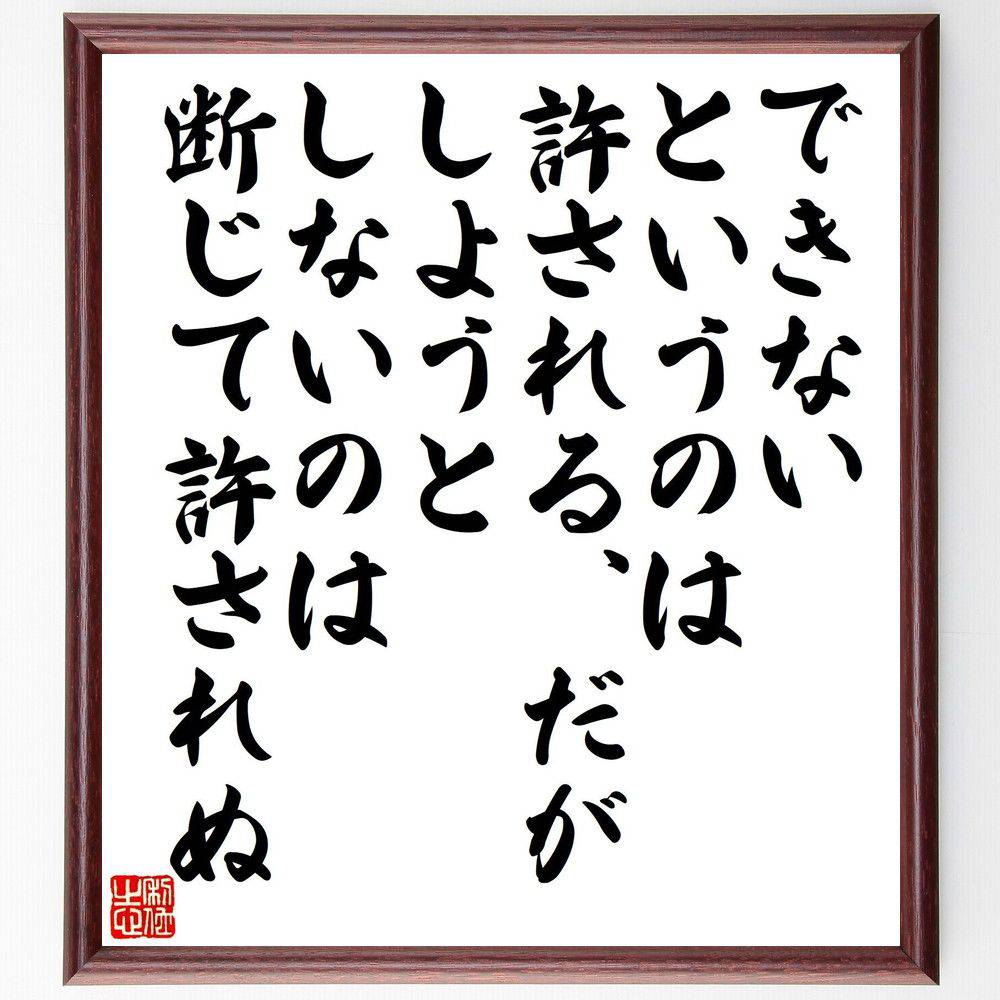 できない
というのは
許される、だが
しようと
しないのは
断じて許されぬ